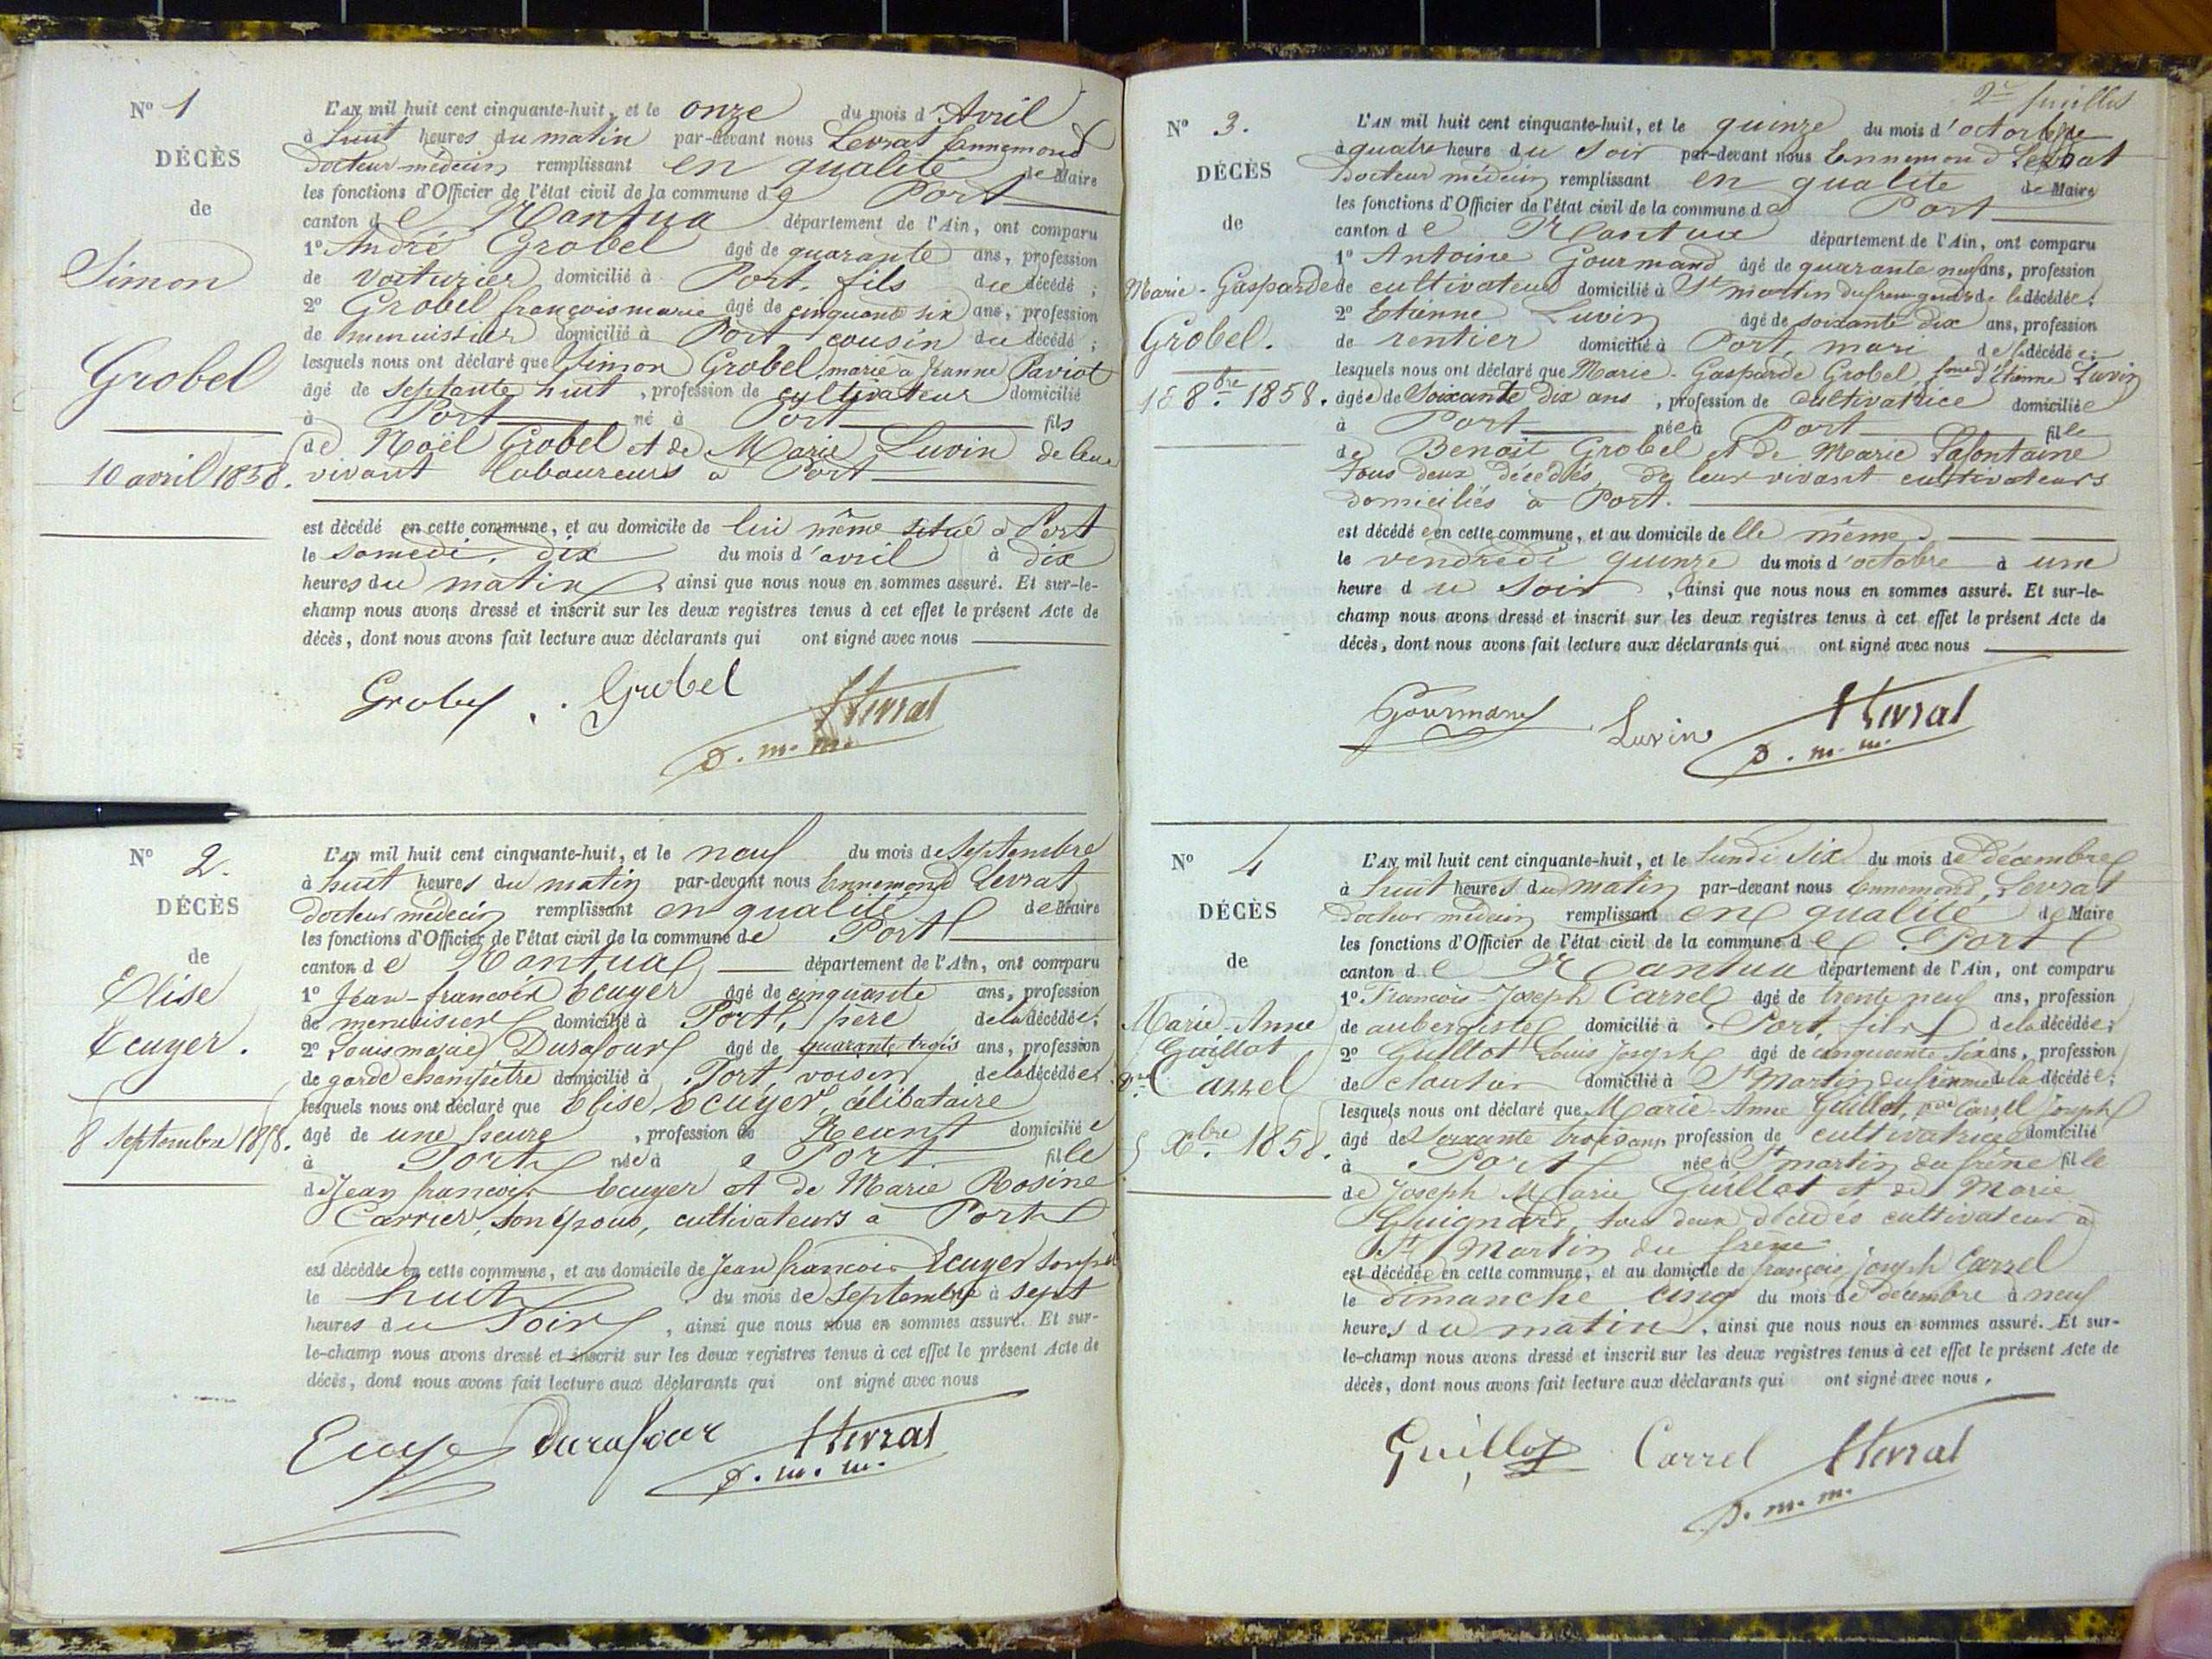 N° 1
DÉCÈS
de
Simon
Grobel
10 avril 1858.
L'AN mil huit cent cinquante-huit, et le onze du mois d'Avril
à huit heures du matin par-devant nous Levrat Ennemond
docteur médecin remplissant en qualité de Maire
les fonctions d'Officier de l'état civil de la commune de Port
canton de Nantua département de l'Ain, ont comparu
1° André Grobel âgé de quarante ans, profession
de voiturier domicilié à Port, fils du décédé ;
2° Grobel françois marie âgé de cinquante six ans, profession
de menuisier domicilié à Port cousin du décédé ;
lesquels nous ont déclaré que Simon Grobel marié à Jeanne Paviot
âgé de septante huit , profession de cultivateur domicilié
à Port né à Port fils
de Noël Grobel et de Marie Luvin de leur
vivant laboureurs à Port
est décédé en cette commune, et au domicile de lui même situé à Port
le samedi, dix du mois d'avril à dix
heures du matin , ainsi que nous nous en sommes assuré. Et sur-le-
champ nous avons dressé et inscrit sur les deux registres tenus à cet effet le présent Acte de
décès, dont nous avons fait lecture aux déclarants qui ont signé avec nous
Grobel Grobel Levrat
d. m. m.
N° 2.
DÉCÈS
de
Elise
Ecuyer.
8 septembre 1858.
L'AN mil huit cent cinquante-huit, et le neuf du mois de Septembre
à huit heures du matin par-devant nous Ennemond Levrat
docteur médecin remplissant en qualité de Maire
les fonctions d'Officier de l'état civil de la commune de Port
canton de Nantua département de l'Ain, ont comparu
1° Jean-françois Ecuyer âgé de cinquante ans, profession
de menuisier domicilié à Port, père de la décédée ;
2° Louis Durafour âgé de quarante trois ans, profession
de garde champêtre domicilié à Port, voisin de la décédée ;
lesquels nous ont déclaré que Elise Ecuyer, célibataire
âgé de une heure , profession de Néant domiciliée
à Port née à Port fille
de Jean françois Ecuyer et de Marie Rosine
Carrier, son épouse, cultivateurs à Port
est décédée en cette commune, et au domicile de Jean françois Ecuyer son père
le huit du mois de Septembre à sept
heures du soir , ainsi que nous nous en sommes assuré. Et sur-
le-champ nous avons dressé et inscrit sur les deux registres tenus à cet effet le présent Acte de
décès, dont nous avons fait lecture aux déclarants qui ont signé avec nous
Ecuyer Durafour Levrat
d. m. m.
2e feuillet
N° 3.
DÉCÈS
de
Marie-Gasparde
Grobel.
15 8bre 1858.
L'AN mil huit cent cinquante-huit, et le quinze du mois d'octobre
à quatre heure du soir par-devant nous Ennemond Levrat
docteur médecin remplissant en qualité de Maire
les fonctions d'Officier de l'état civil de la commune de Port
canton de Nantua département de l'Ain, ont comparu
1° Antoine Gourmand âgé de quarante neuf ans, profession
de cultivateur domicilié à St martin du frene gendre de la décédée ;
2° Etienne Luvin âgé de soixante dix ans, profession
de rentier domicilié à Port, mari de la décédée ;
lesquels nous ont déclaré que Marie-Gasparde Grobel, fme d'Etienne Luvin
âgée de soixante dix ans , profession de cultivatrice domiciliée
à Port née à Port fille
de Benoit Grobel et de Marie Lafontaine
tous deux décédés, de leur vivant cultivateurs
domiciliés à Port.
est décédée en cette commune, et au domicile de elle même
le vendredi quinze du mois d'octobre à une
heure du soir , ainsi que nous nous en sommes assuré. Et sur-le-
champ nous avons dressé et inscrit sur les deux registres tenus à cet effet le présent Acte de
décès, dont nous avons fait lecture aux déclarants qui ont signé avec nous
Gourmand Luvin Levrat
d. m. m.
N° 4
DÉCÈS
de
Marie-Anne
Guillot
Carrel
5 Xbre 1858.
L'AN mil huit cent cinquante-huit, et le lundi six du mois de décembre
à huit heures du matin par-devant nous Ennemond, Levrat
docteur médecin remplissant en qualité de Maire
les fonctions d'Officier de l'état civil de la commune de Port
canton de Nantua département de l'Ain, ont comparu
1° François-Joseph Carrel âgé de trente neuf ans, profession
de aubergiste domicilié à Port, fils de la décédée ;
2° Guillot Louis Joseph âgé de cinquante six ans, profession
de cloutier domicilié à St Martin du frene de la décédée ;
lesquels nous ont déclaré que Marie-Anne Guillot, vve Carrel Joseph
âgé de Soixante trois ans profession de cultivatrice domicilié
à Port née à St martin du frêne fille
de Joseph Marie Guillot et de Marie
Guignard, tous deux décédés cultivateur à
St Martin du frene
est décédée en cette commune, et au domicile de françois joseph Carrel
le dimanche cinq du mois de décembre à neuf
heures du matin , ainsi que nous nous en sommes assuré. Et sur-
le-champ nous avons dressé et inscrit sur les deux registres tenus à cet effet le présent Acte de
décès, dont nous avons fait lecture aux déclarants qui ont signé avec nous .
Guillot Carrel Levrat
d. m. m.